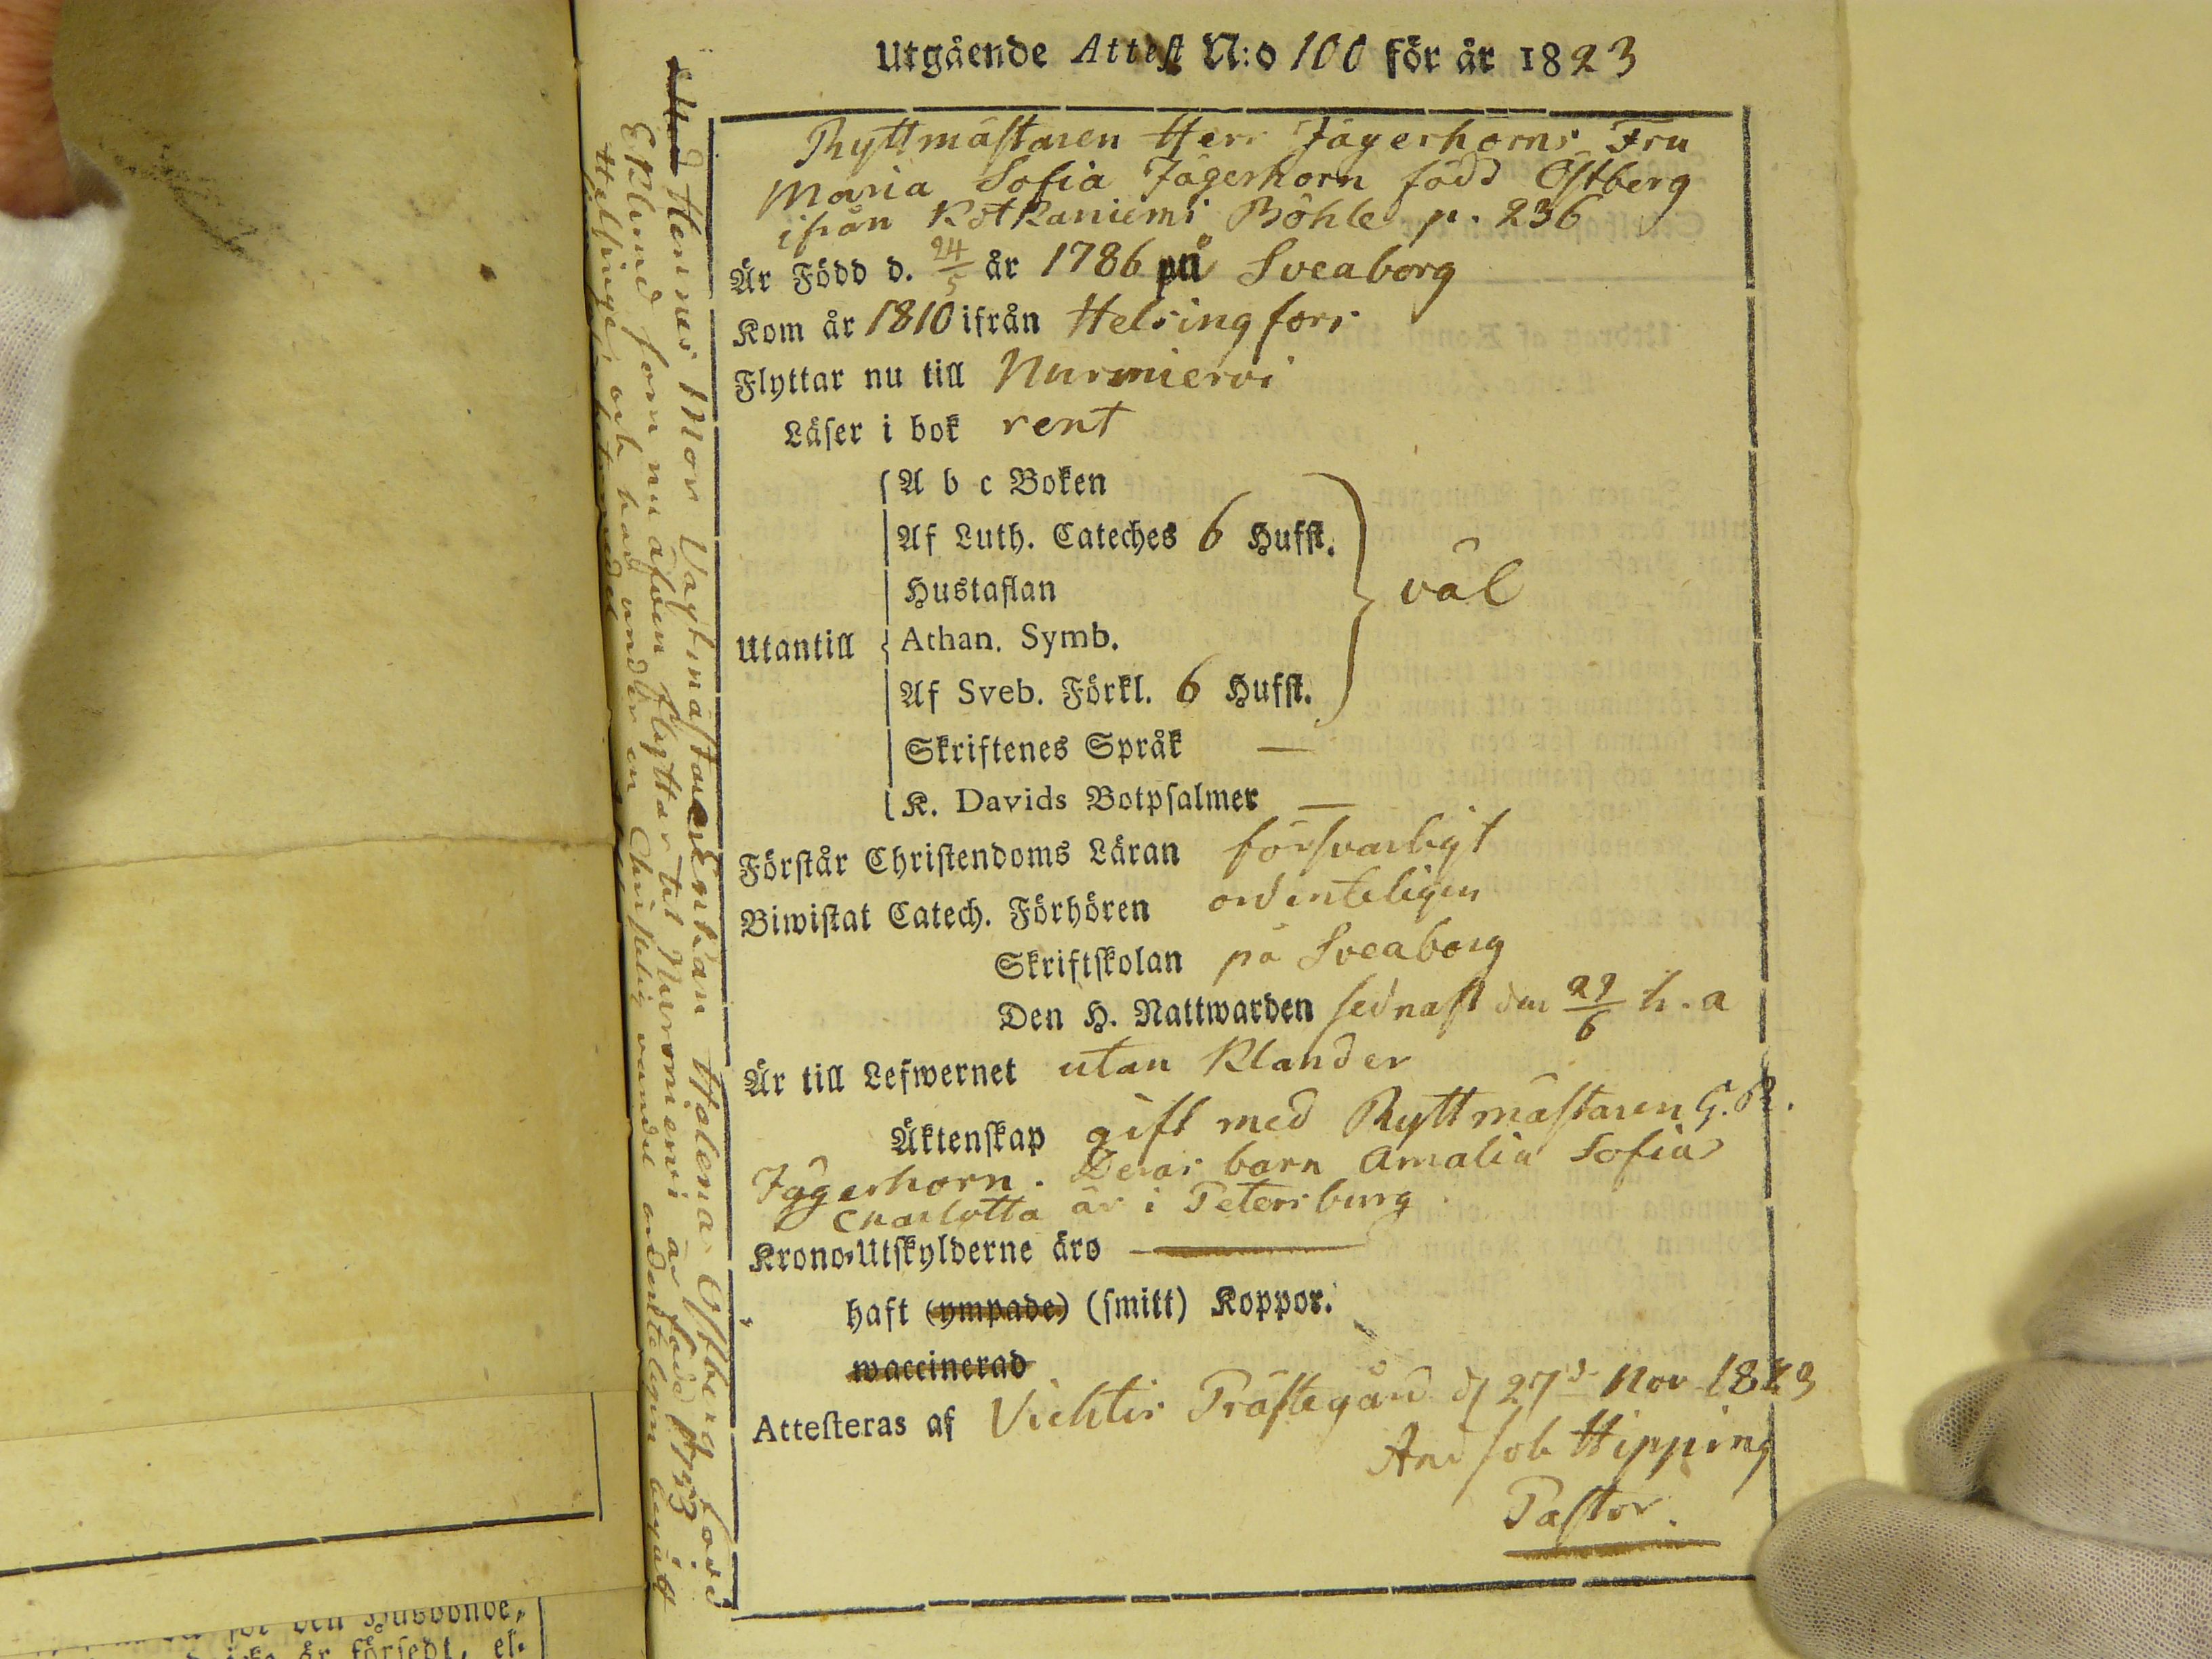 Utgående Attest N:o 100 för år 1823
Ryttmästaren Herr Jägerhorns Fru
Maria Sofia Jägerhorn född Östberg
ifrån Kotkaniemi Böhle p. 236
Är Född d. 24/5 år 1786 på Sveaborg
Kom år 1810 ifrån Helsingfors
Flyttar nu till Nurmiervi
Läser i bok rent
A b c Boken
Af Luth. Cateches 6 Hufst.
Hustaflan
väl
Utantill
Athan. Symb.
Af Sveb. Förkl. 6 Hufst.
Skriftenes Språk —
K. Davids Botpsalmer —
Förstår Christendoms Läran försvarligt
Biwistat Catech. Förhören ordenteligen
Skriftskolan på Sveaborg
Den H. Nattwarden sednast den 29/6 h. a
Är till Lefwernet utan Klander
Äktenskap gift med Ryttmästaren G. R.
Jägerhorn. Deras barn Amalia Sofia
Charlotta är i Petersburg
Krono-Utskylderne äro —
haft (ympade) (smitt) Koppor.
waccinerad
Attesteras af Vichtis Prästegård d 27d Nov 1823
And Job Hipping
Pastor.
Hennes Mor Vagtmästare Enkan Helena Östberg född
Eklund som nu äfven flyttar til Nurmiervi är född 1753
Helsinge och had under en Christelig vandel ordenteligen begått
H. Nattvarden
för den Husbonde,
är försedt, el-